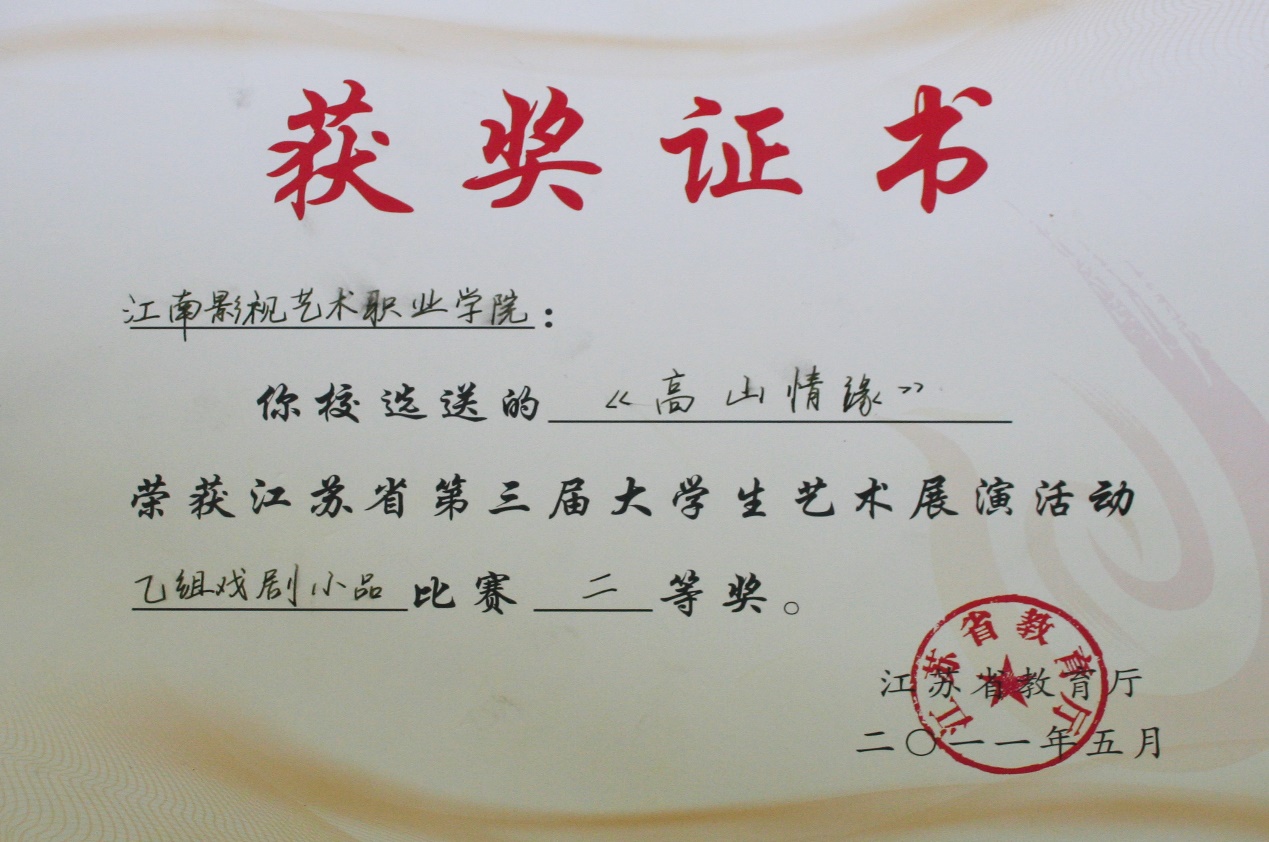 获奖证书
江南影视艺术职业学院：
你校选送的《高山情缘》
荣获江苏省第三届大学生艺术展演活动
乙组戏剧小品比赛二等奖。
江苏省教育厅
江苏省教育厅
二〇一一年五月